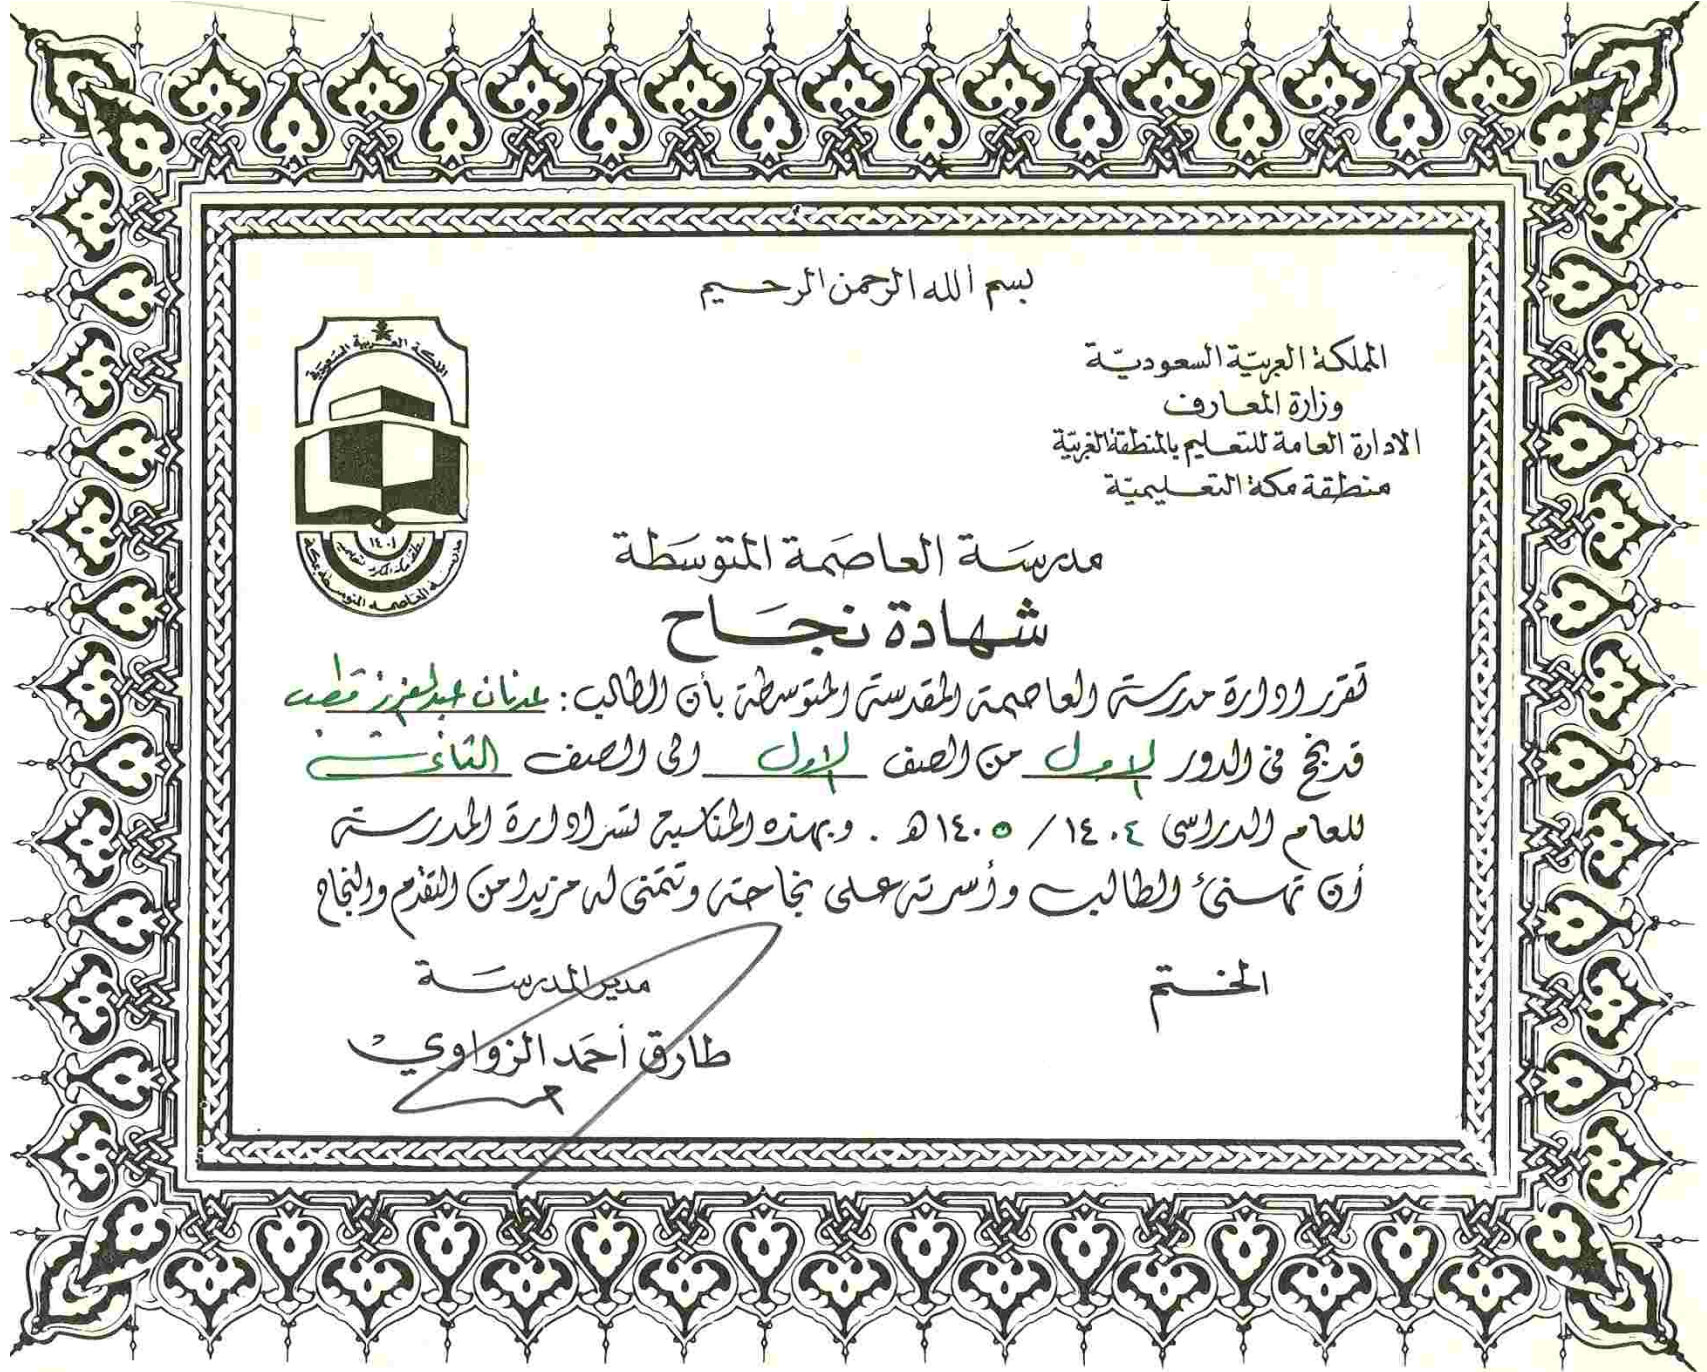 بسم الله الرحمن الرحيم
المملكة العربيّة السعوديّة
وزارة المعارف
الادارة العامة للتعليم بالمنطقة الغربيّة
منطقة مكة التعليميّة
المملكة العربية السعودية
١٤٠١
منطقة مكة المكرمة التعليمية
مدرسة العاصمه المتوسطه بمكة
مدرسَة العاصَمة المتوسَطة
شهادة نجَاح
تقرر ادارة مدرسة العاصمة المقدسة المتوسطة بأن الطالب: عدنان عبدالعزيز قطب
قد نجح فى الدور الاول من الصف الاول الى الصف الثانى
للعام الدراسى ١٤٠٤ / ١٤٠٥ هـ . وبهذه المناسبة تسر ادارة المدرسة
أن تهنئ الطالب وأسرته على نجاحه وتتمنى له مزيدا من التقدم والنجاح
الختم
مدير المدرسَة
طارق أحمَد الزواوي